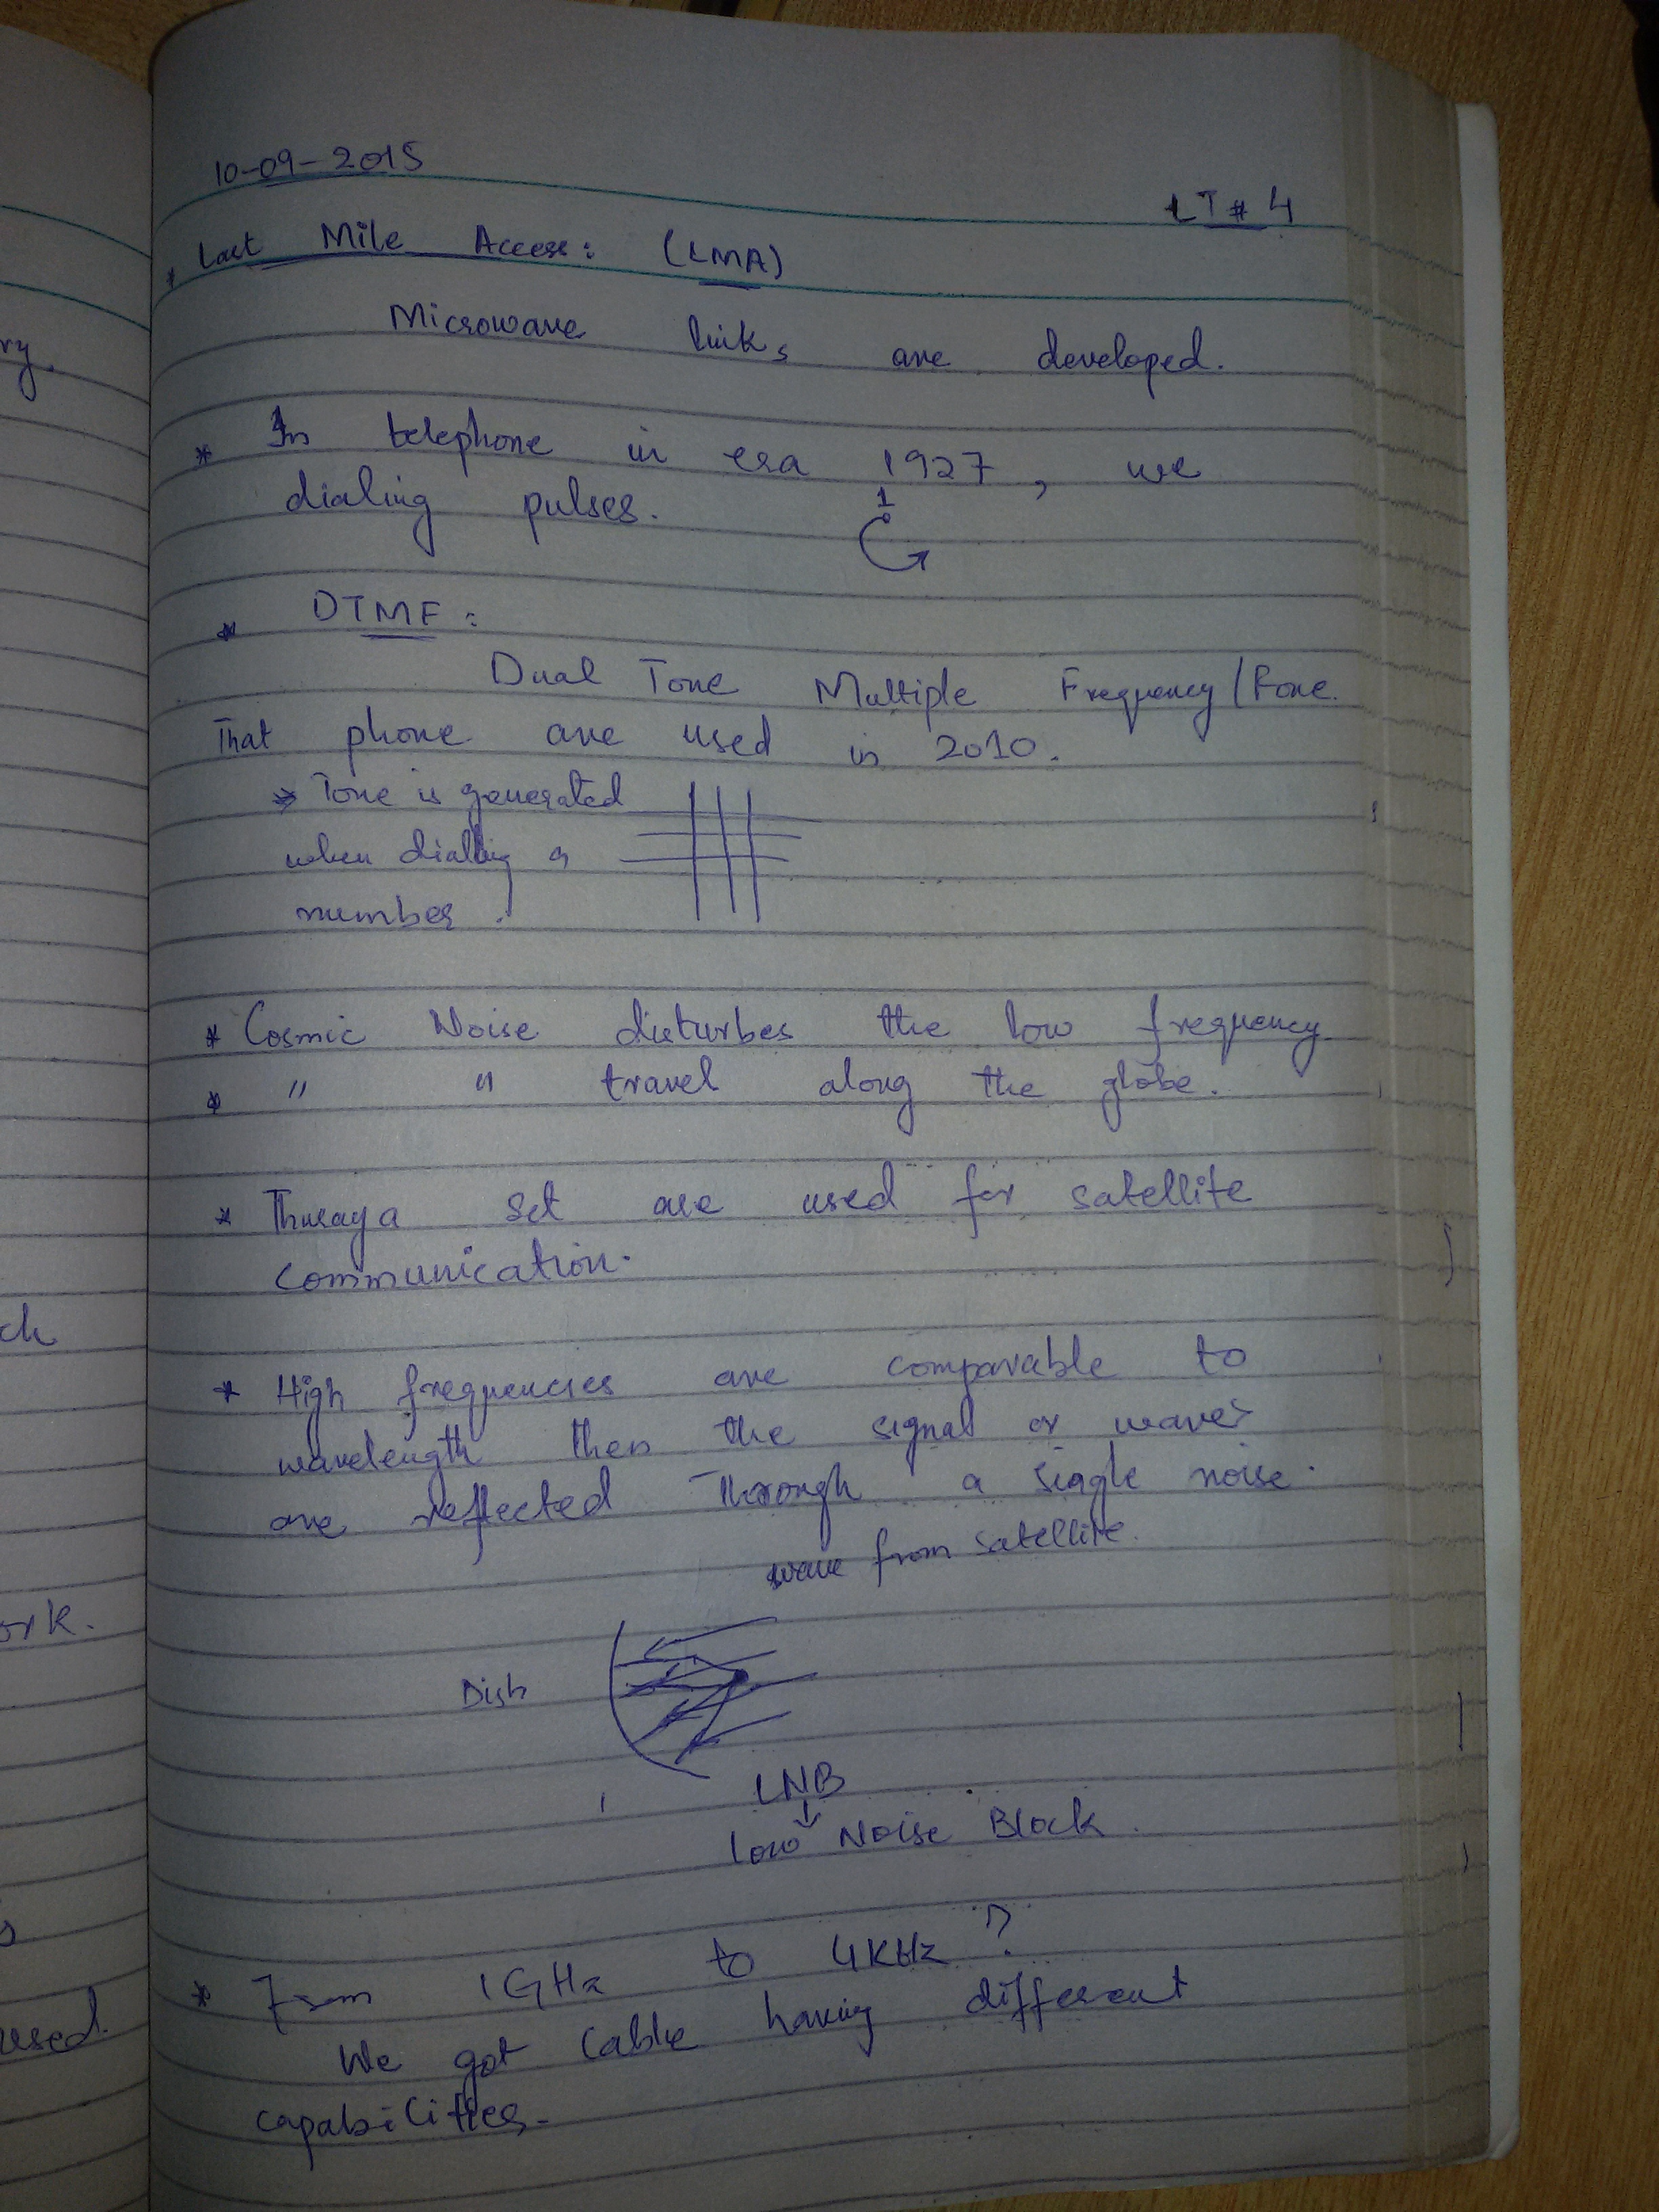 10-09-2015
LT# 4
* Last Mile Access: (LMA)
Microwave links are developed.
* In telephone in era 1927, we
dialing pulses.
1
* DTMF:
Dual Tone Multiple Frequency/Fone.
That phone are used in 2010.
* Tone is generated
when dialling a
number.
* Cosmic Noise disturbes the low frequency
* " " travel along the globe.
* Thuraya set are used for satellite
communication.
* High frequencies are comparable to
wavelength then the signal or waves
are reflected Through a single noise.
wave from satellite.
Dish
LNB
↓
Low Noise Block.
* From 1GHz to 4KHz?
We got cable having different
capabilities.
ry.
ch
ork.
s
used.